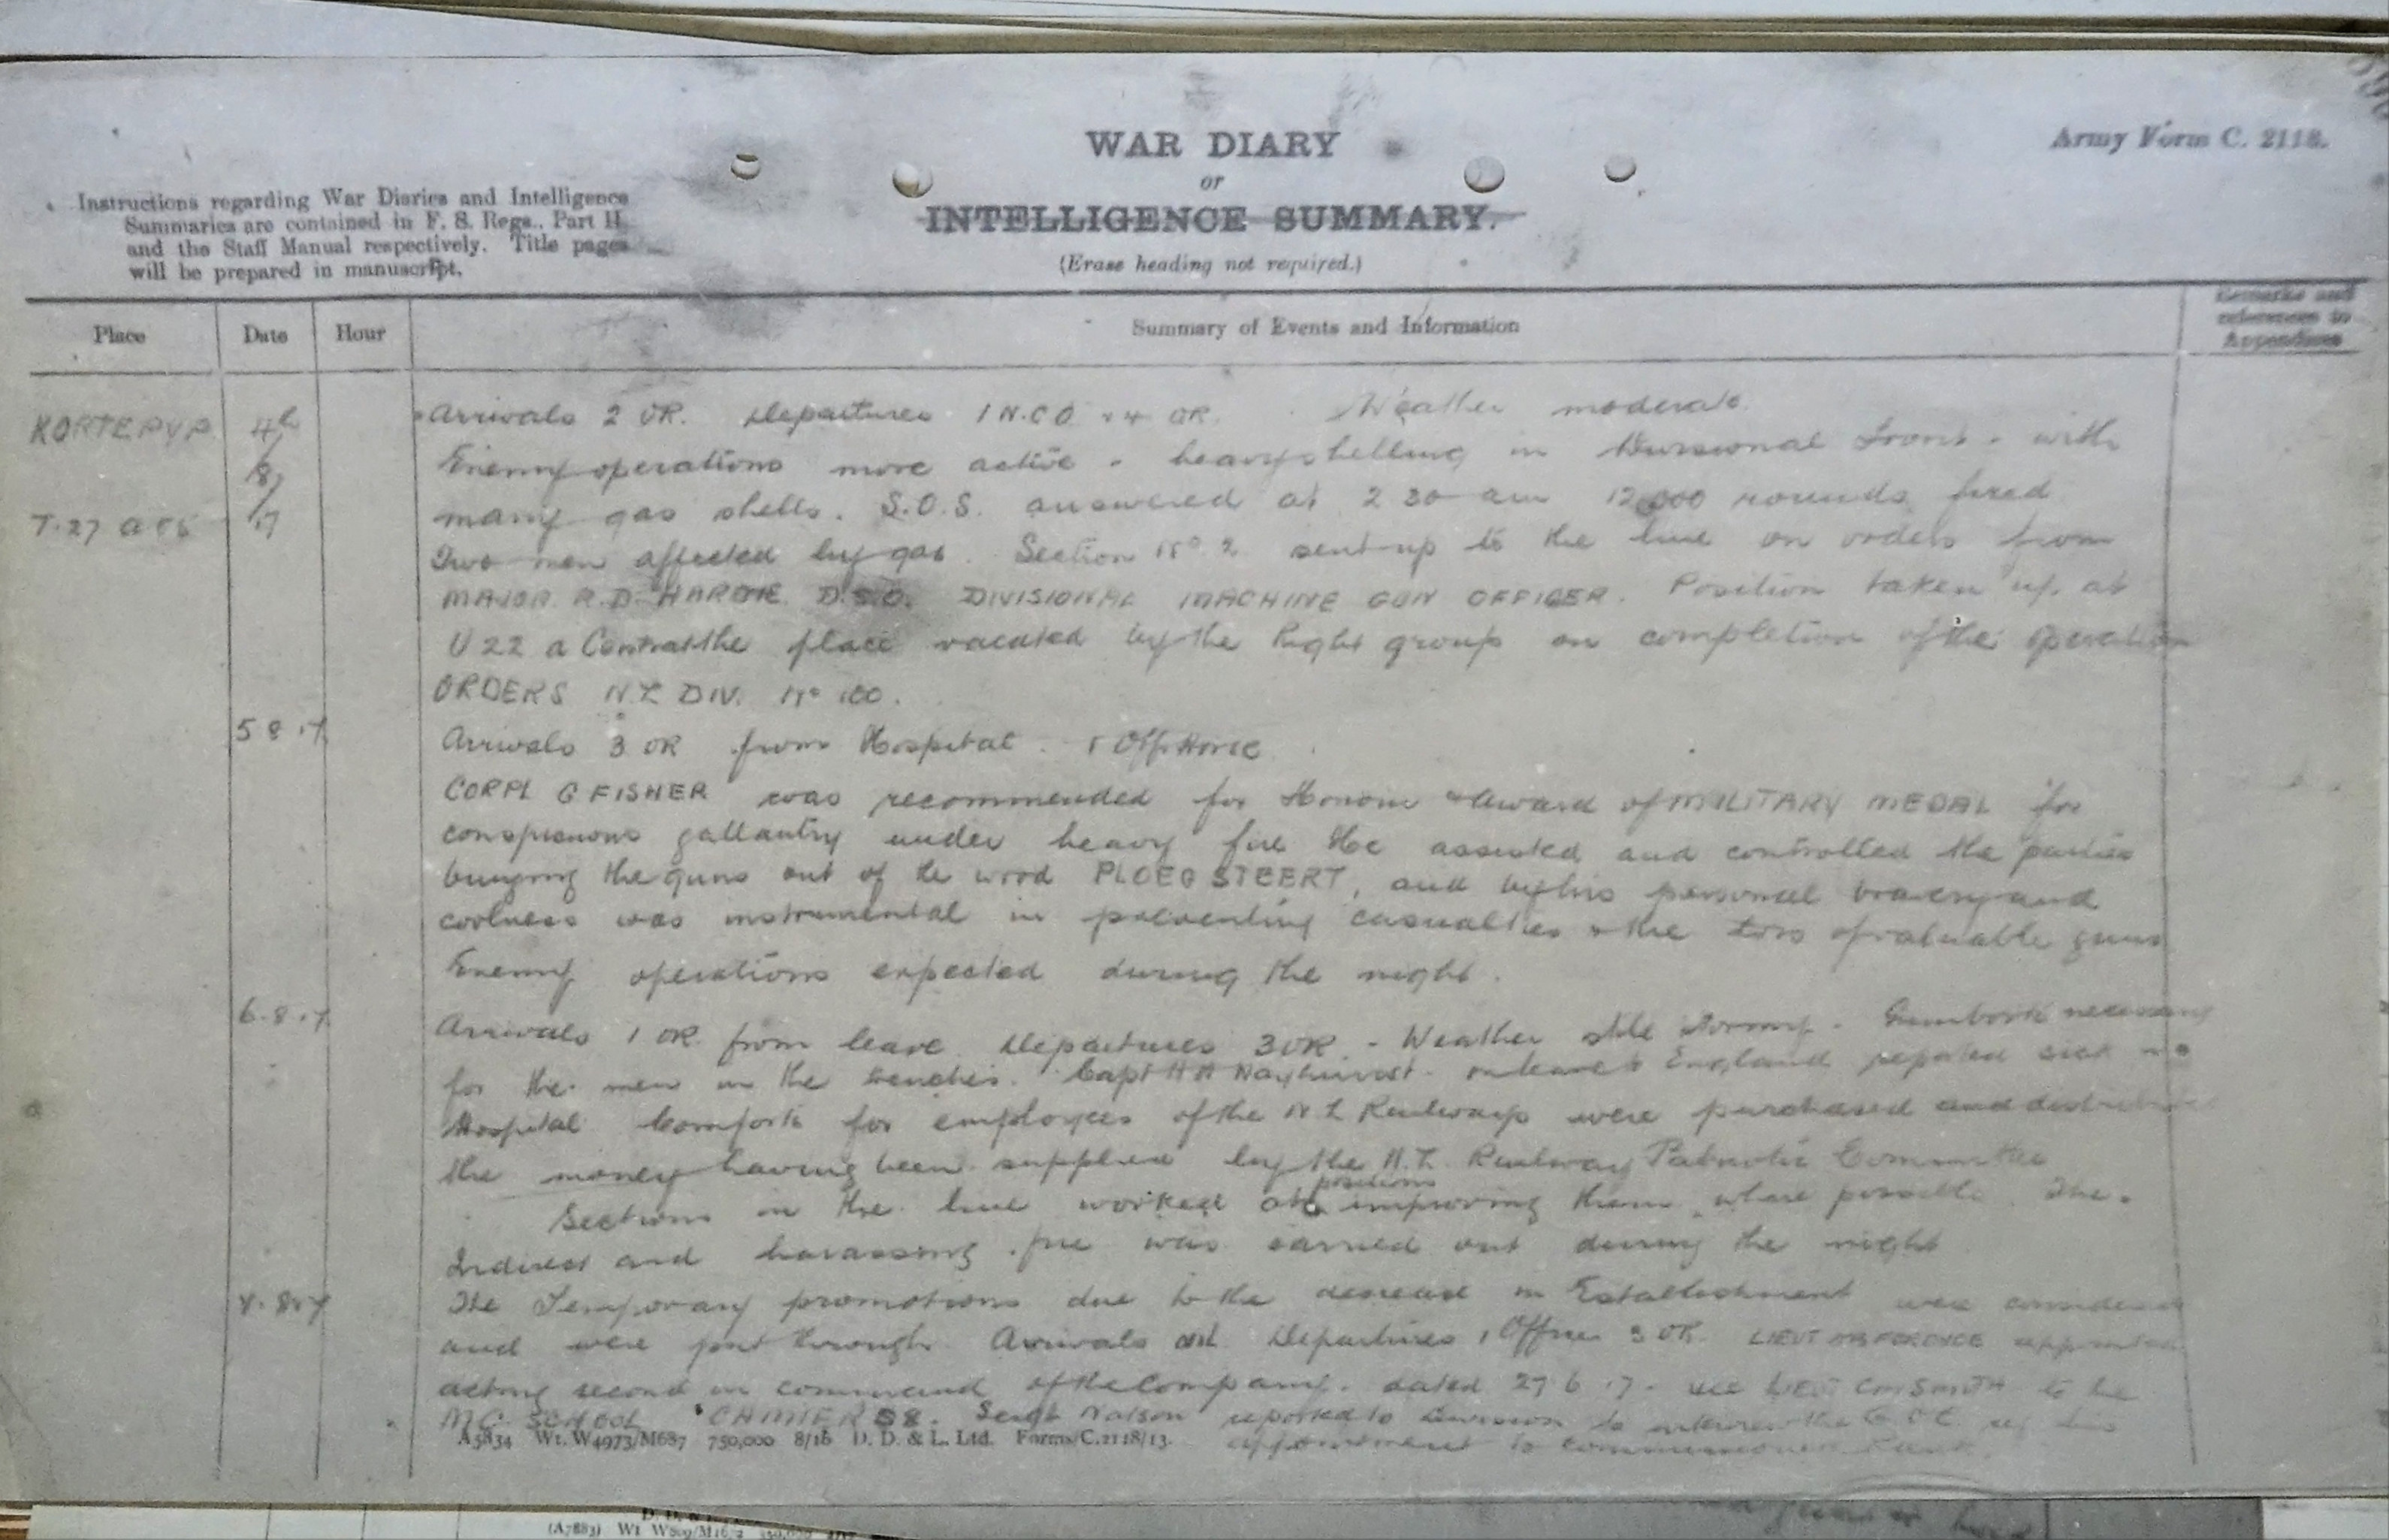 WAR DIARY
or
INTELLIGENCE SUMMARY.
(Erase heading not required.)
Army Form C. 2118.
Instructions regarding War Diaries and Intelligence
Summaries are contained in F. S. Regs., Part II
and the Staff Manual respectively. Title pages
will be prepared in manuscript.
Place Date Hour Summary of Events and Information Remarks and
references to
Appendices
KORTEPYP 4th Arrivals 2 OR. Departures 1 N.C.O. + 4 OR. Weather moderate.
8 Enemy operations more active - heavy shelling in Divisional Front - with
T.27 17 many gas shells. S.O.S. answered at 2 30 am 12,000 rounds fired
Two men affected by gas. Section No. 2 sent up to the line on orders from
MAJOR R.D. HARDIE D.S.O. DIVISIONAL MACHINE GUN OFFICER. Position taken up at
U 22 a Central the place vacated by the Right group on completion of the operation
ORDERS N.Z DIV. No 100.
5 8 17 Arrivals 3 OR from Hospital. 1 Off. Horse
CORPL G FISHER was recommended for Honour & Award of MILITARY MEDAL for
conspicuous gallantry under heavy fire He assisted and controlled the parties
bringing the guns out of the wood PLOEGSTEERT, and by his personal bravery and
coolness was instrumental in preventing casualties & the loss of valuable guns
Enemy operations expected during the night.
6.8.17 Arrivals 1 OR from leave. Departures 3 OR. - Weather still stormy. Gumboots necessary
for the men in the trenches. Capt H A Nayhurst on leave to England reported sick
Hospital Comforts for employees of the N Z Railways were purchased and distributed
the money having been supplied by the N.Z. Railway Patriotic Committee
positions
Sections in the line worked at improving them where possible The
Indirect and harassing fire was carried out during the night
7.8.17 The Temporary promotions due to the decrease in Establishment were considered
and were put through. Arrivals nil Departures 1 Officer 3 OR. LIEUT appointed
acting second in command of the Company. dated 27 6 17. LIEUT C M SMITH to the
M.G. SCHOOL CAMIERS. Sergt Watson reported to Division to interview the G.O.C. his
appointment to commissioned Rank
A5834 Wt. W4973/M687 750,000 8/16 D. D. & L. Ltd. Forms/C.2118/13.
(A7883) Wt W809/M1672